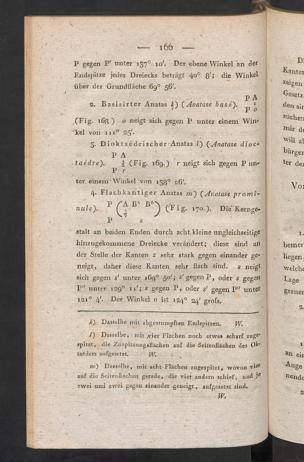 — 166 —
P gegen P' unter 137° 10'. Der ebene Winkel an der
Endspitze jedes Dreiecks beträgt 40° 8'; die Winkel
über der Grundfläche 69° 56'.
P A
2. Basisirter Anatas k) (Anatase basé).
P o
(Fig. 168.) o neigt sich gegen P unter einem Win-
kel von 111° 25'.
3. Dioktaëdrischer Anatas l) (Anatase dioc-
P A
taèdre). (Fig. 169.) r neigt sich gegen P un-
P r
ter einem Winkel von 158° 26'.
4. Flachkantiger Anatas m) (Anatase promi-
nule). P (A B B) (Fig. 170.). Die Kernge-
P s
stalt an beiden Enden durch acht kleine ungleichseitige
hinzugekommene Dreiecke verändert; diese sind an
der Stelle der Kanten z sehr stark gegen einander ge-
neigt, daher diese Kanten sehr flach sind. s neigt
sich gegen s' unter 169° 50'; s' gegen P, oder s gegen
P'' unter 129° 11'; s gegen P, oder s' gegen P'' unter
121° 4'. Der Winkel o ist 124° 24' groſs.
k) Dasselbe mit abgestumpften Endspitzen. W.
l) Dasselbe, mit vier Flächen noch etwas scharf zuge-
spitzt, die Zuspitzungsflächen auf die Seitenflächen des Ok-
taëders aufgesetzt. W.
m) Dasselbe, mit acht Flächen zugespitzt, wovon vier
auf die Seitenflächen gerade, die vier andern schief, und je
zwei und zwei gegen einander geneigt, aufgesetzt sind.
W.